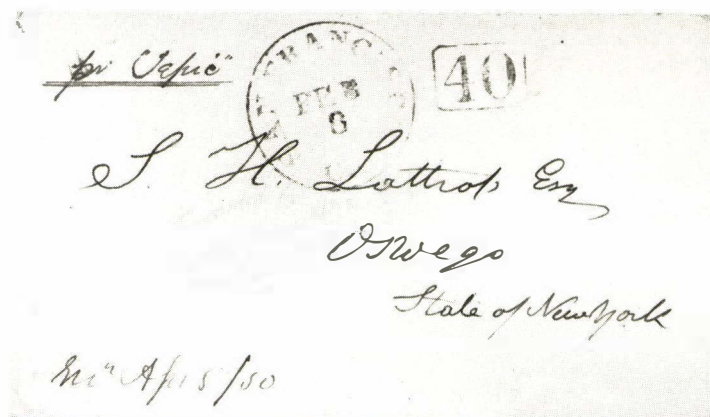 pr "Tepic"
SAN FRANCISCO
FEB
6
40
S. H. Lathrop Esq
Oswego
State of New York
Apr 5/50